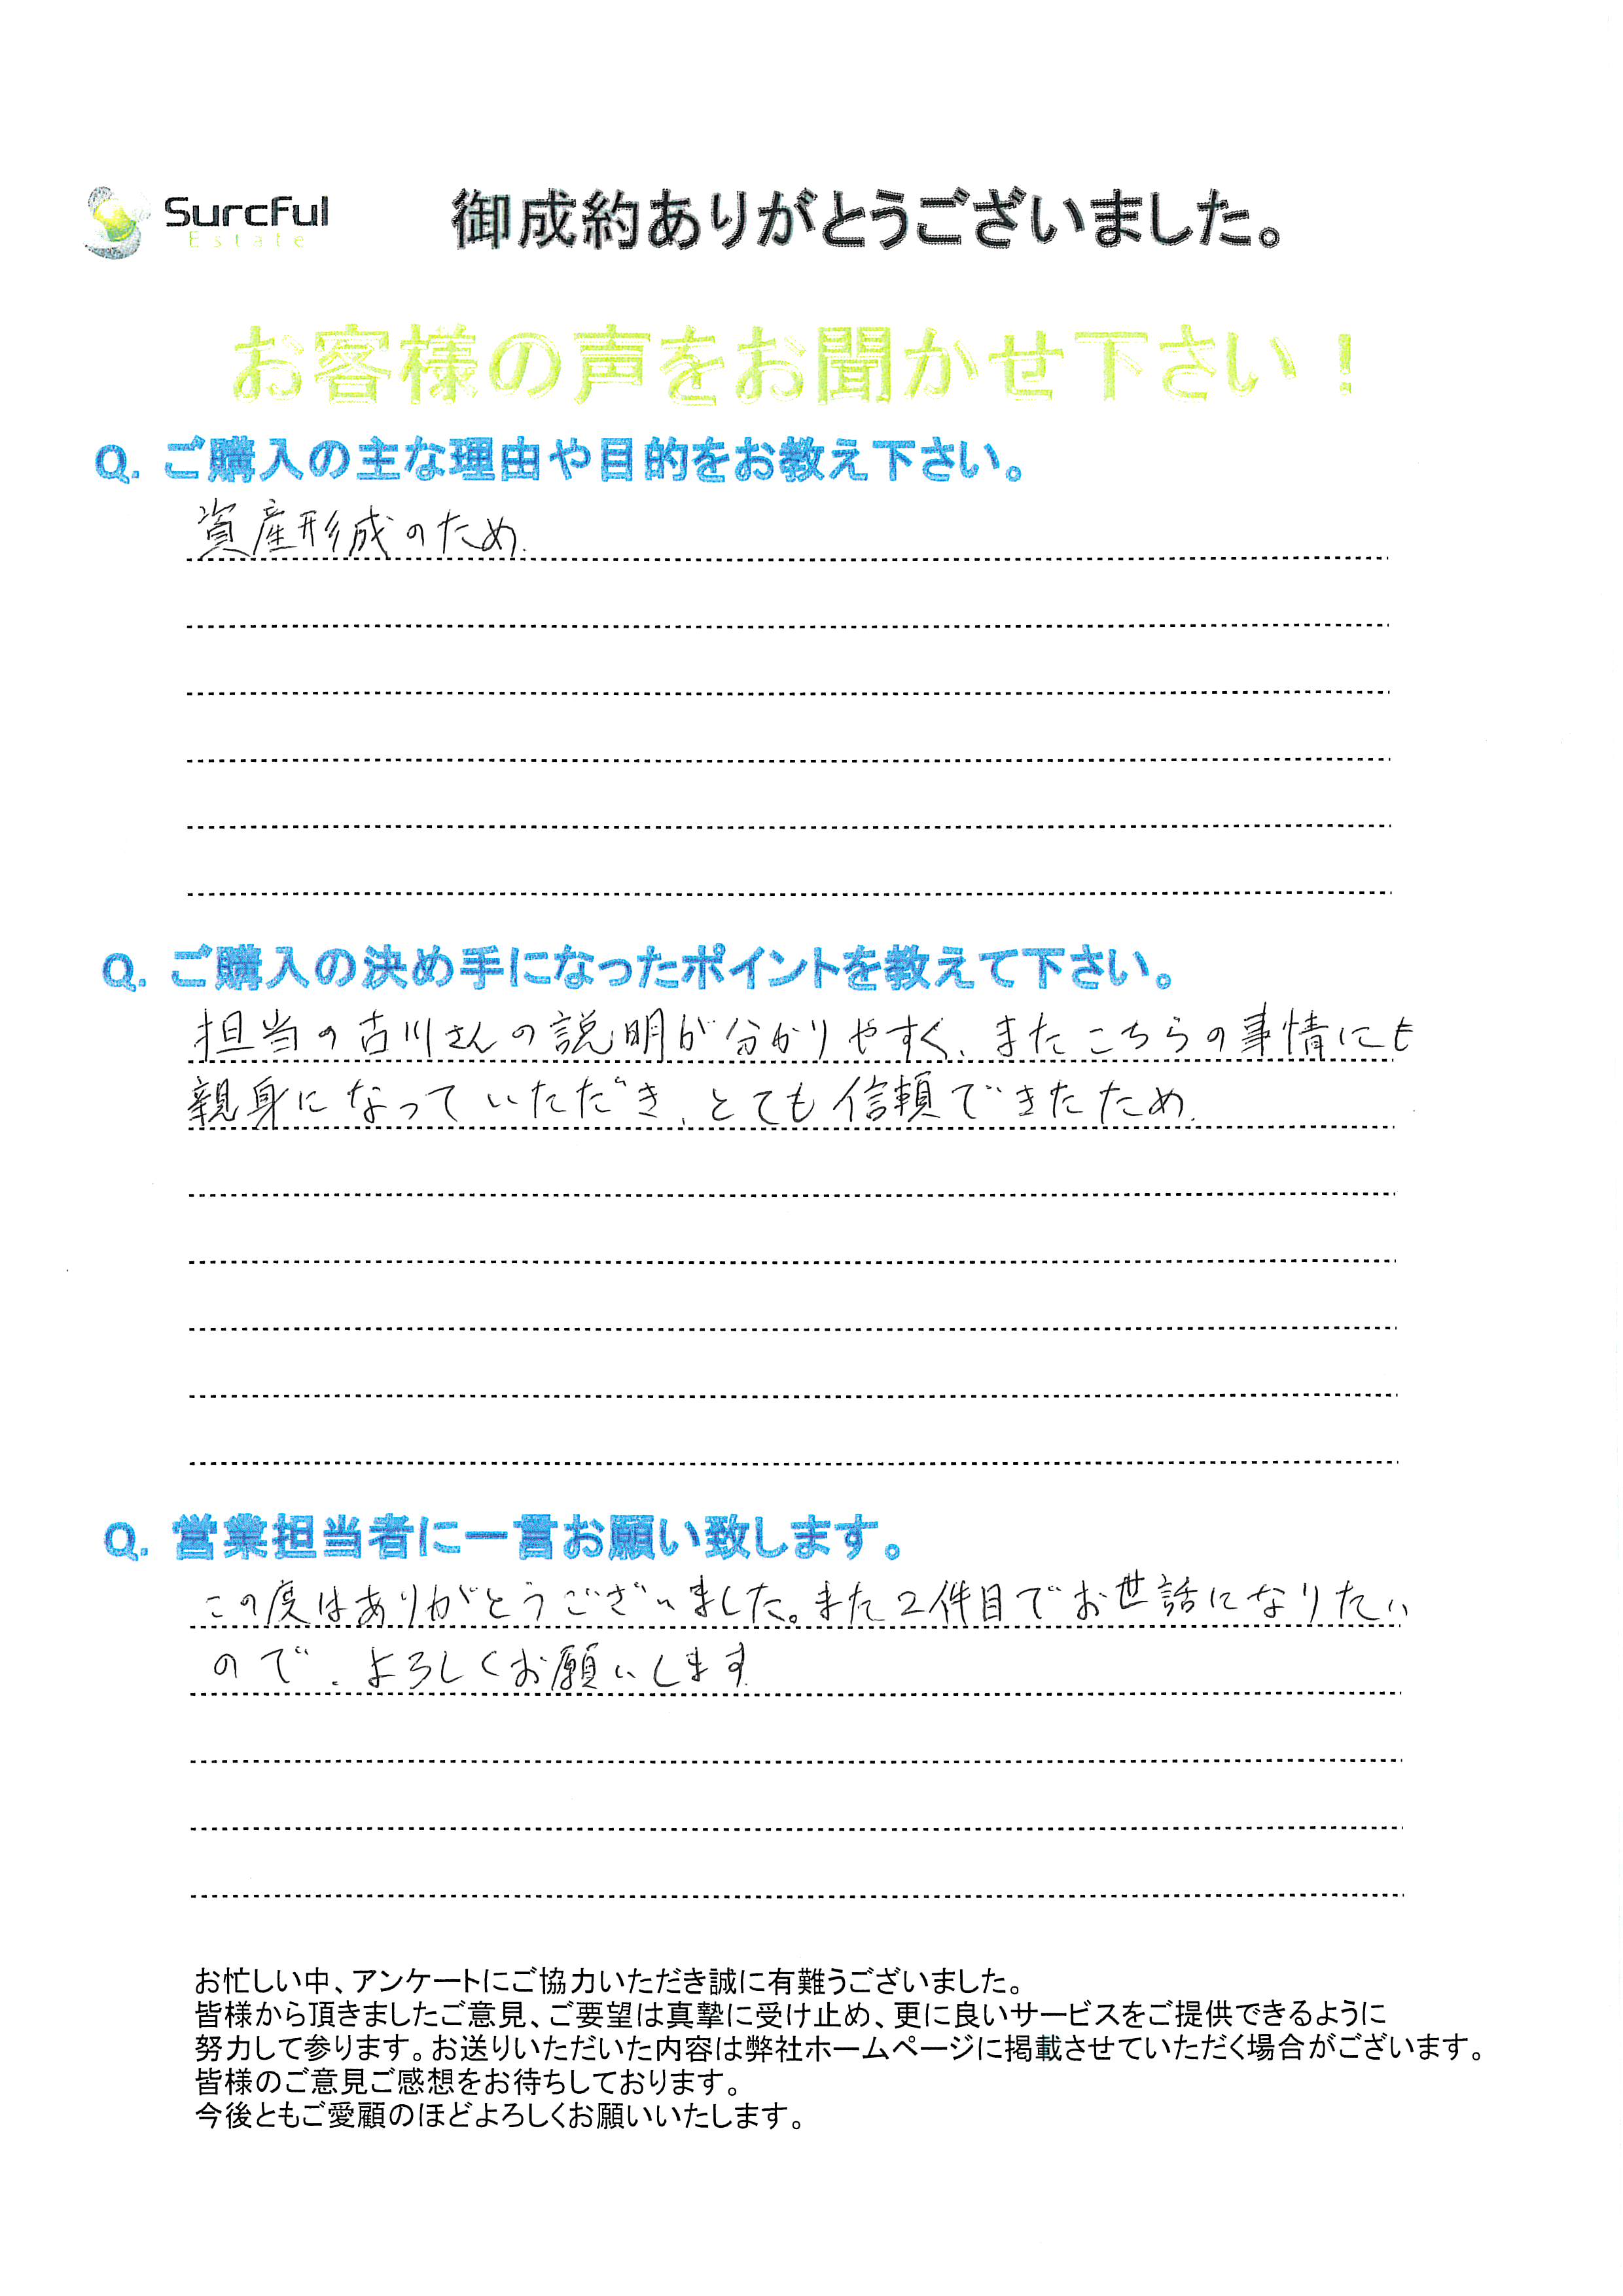 Surcful
Estate
御成約ありがとうございました。
お客様の声をお聞かせ下さい！
Q. ご購入の主な理由や目的をお教え下さい。
資産形成のため.
Q. ご購入の決め手になったポイントを教えて下さい。
担当の古川さんの説明が分かりやすく、またこちらの事情にも
親身になっていただき、とても信頼できたため.
Q. 営業担当者に一言お願い致します。
この度はありがとうございました。また2件目でお世話になりたい
ので、よろしくお願いします.
お忙しい中、アンケートにご協力いただき誠に有難うございました。
皆様から頂きましたご意見、ご要望は真摯に受け止め、更に良いサービスをご提供できるように
努力して参ります。お送りいただいた内容は弊社ホームページに掲載させていただく場合がございます。
皆様のご意見ご感想をお待ちしております。
今後ともご愛顧のほどよろしくお願いいたします。